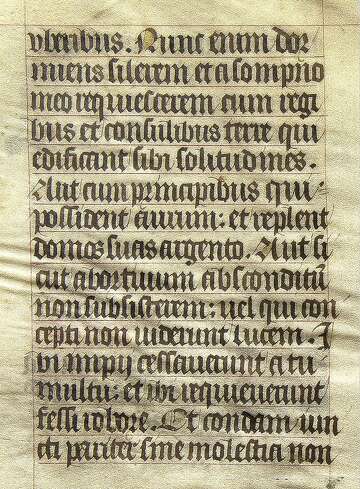 vberibus. Nunc enim dor
miens silerem et a sompno
meo requiescerem cum regi
bus et consulibus terre qui
edificant sibi solitudines.
Aut cum principibus qui
possident aurum: et replent
domos suas argento. Aut si
cut abortiuum absconditū
non subsisterem: uel qui con
cepti non uiderunt lucem. I
vi impij cessauerunt a tu
multu: et ibi requieuerunt
fessi robore. Et condam uin
cti pariter sine molestia non